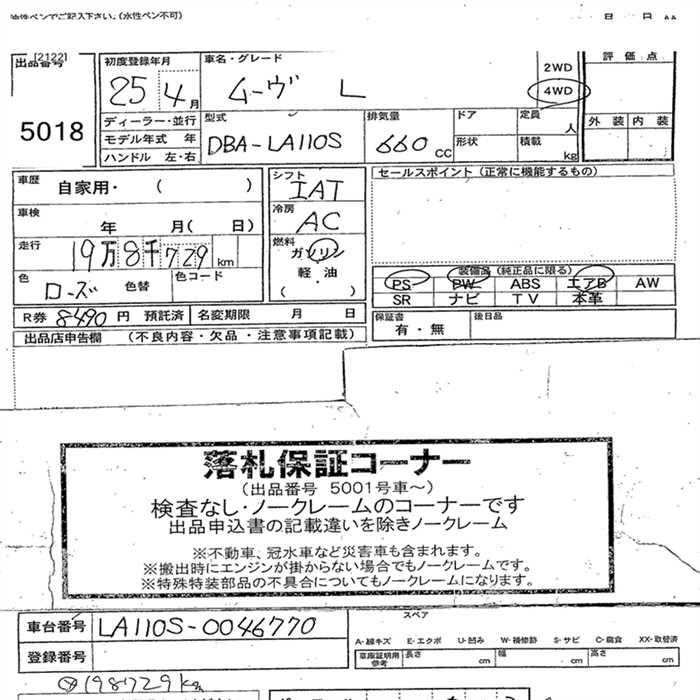 油性ペンでご記入下さい。(水性ペン不可) 月 日
[2122]
出品番号 初度登録年月 車名・グレード 2WD 評 価 点
5018 25 4月 ムーヴ L 4WD
ディーラー・並行 型式 排気量 ドア 定員 人 外 装 内 装
モデル年式 年 DBA-LA110S 660 CC 形状 積載 kg
ハンドル 左・右
車歴 自家用・ ( ) シフト IAT セールスポイント (正常に機能するもの)
車検 年 月( 日) 冷房 AC
走行 19万8千729km 燃料 ガソリン
軽・油
( )
色 ローズ 色替 色コード
装備品(純正品に限る)
PS PW ABS エアB AW
SR ナビ TV 本革
R券 8490 円 預託済 名変期限 月 日 保証書 有・無 後日品
出品店申告欄 (不良内容・欠品・注意事項記載)
落札保証コーナー
(出品番号 5001号車~)
検査なし・ノークレームのコーナーです
出品申込書の記載違いを除きノークレーム
※不動車、冠水車など災害車も含まれます。
※搬出時にエンジンが掛からない場合でもノークレームです。
※特殊特装部品の不具合についてもノークレームになります。
スペア
車台番号 LA110S-0046770
A-線キズ E-エクボ U-凹み W-補修跡 S-サビ C-腐食 XX-取替済
登録番号 車庫証明用参考 長さ cm 幅 cm 高さ cm
198729km